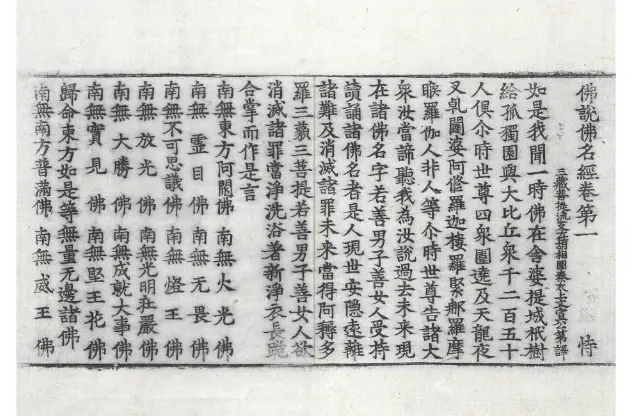 佛說佛名經卷第一 恃
三藏菩提流支在胡相國秦太上文宣公第譯
如是我聞一時佛在舍婆提城祇樹
給孤獨園與大比丘衆千二百五十
人俱尒時世尊四衆圍遶及天龍夜
叉乹闥婆阿脩羅迦樓羅緊那羅摩
睺羅伽人非人等尒時世尊告諸大
衆汝當諦聽我為汝說過去未來現
在諸佛名字若善男子善女人受持
讀誦諸佛名者是人現世安隱遠離
諸難及消滅諸罪未來當得阿耨多
羅三藐三菩提若善男子善女人欲
消滅諸罪當淨洗浴著新淨衣長跪
合掌而作是言
南無東方阿閦佛 南無火光佛
南無靈目佛 南無无畏佛
南無不可思議佛 南無燈王佛
南無放光佛 南無光明莊嚴佛
南無大勝佛 南無成就大事佛
南無實見佛 南無堅王花佛
歸命東方如是等無量无邊諸佛
南無南方普滿佛 南無威王佛